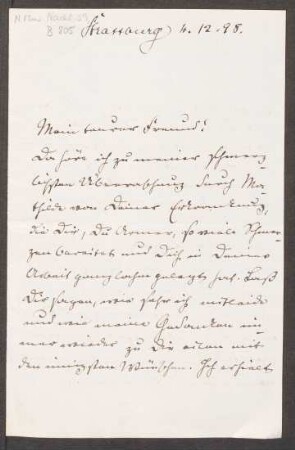 Strassburg, 4. 12. 98.
Mein teurer Freund!
Da höre ich zu meiner schmerz-
lichsten Überraschung durch Ma-
thilde von Deiner Erkrankung,
die Dir, du Armer, so viele Schmer-
zen bereitet und Dich in Deiner
Arbeit ganz lahm gelegt hat. Laß
Dir sagen, wie sehr ich mitleide
und wie meine Gedanken im-
mer wieder zu Dir eilen mit
den innigsten Wünschen. Ich erhielt